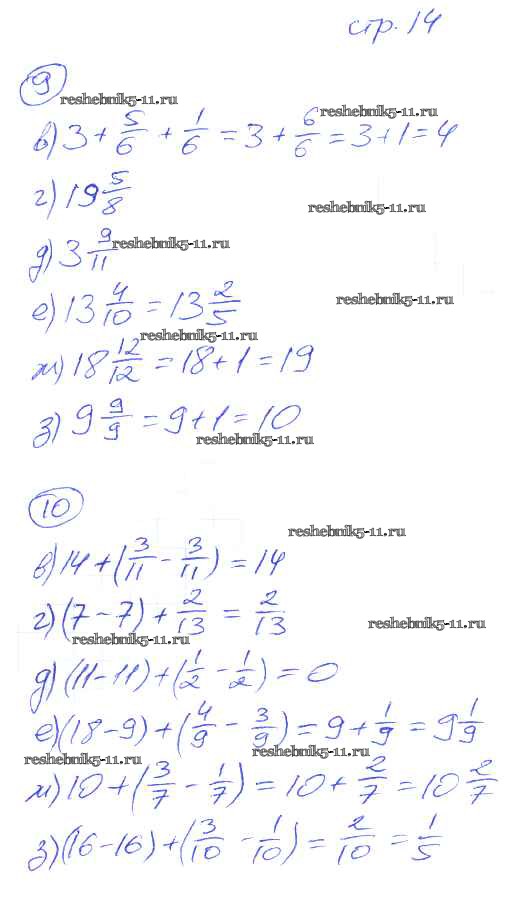 стр. 14
9
reshebnik5-11.ru
в) 3 + 5/6 + 1/6 = 3 + 6/6 = 3 + 1 = 4
reshebnik5-11.ru
г) 19 5/8
reshebnik5-11.ru
д) 3 9/11
reshebnik5-11.ru
е) 13 4/10 = 13 2/5
reshebnik5-11.ru
reshebnik5-11.ru
ж) 18 12/12 = 18 + 1 = 19
з) 9 9/9 = 9 + 1 = 10
reshebnik5-11.ru
10
reshebnik5-11.ru
в) 14 + (3/11 - 3/11) = 14
г) (7 - 7) + 2/13 = 2/13
reshebnik5-11.ru
reshebnik5-11.ru
д) (11 - 11) + (1/2 - 1/2) = 0
е) (18 - 9) + (4/9 - 3/9) = 9 + 1/9 = 9 1/9
reshebnik5-11.ru
reshebnik5-11.ru
ж) 10 + (3/7 - 1/7) = 10 + 2/7 = 10 2/7
з) (16 - 16) + (3/10 - 1/10) = 2/10 = 1/5